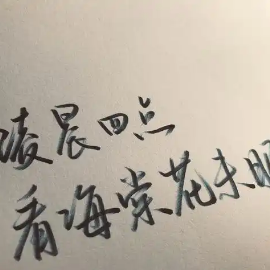 凌晨四点
看海棠花未